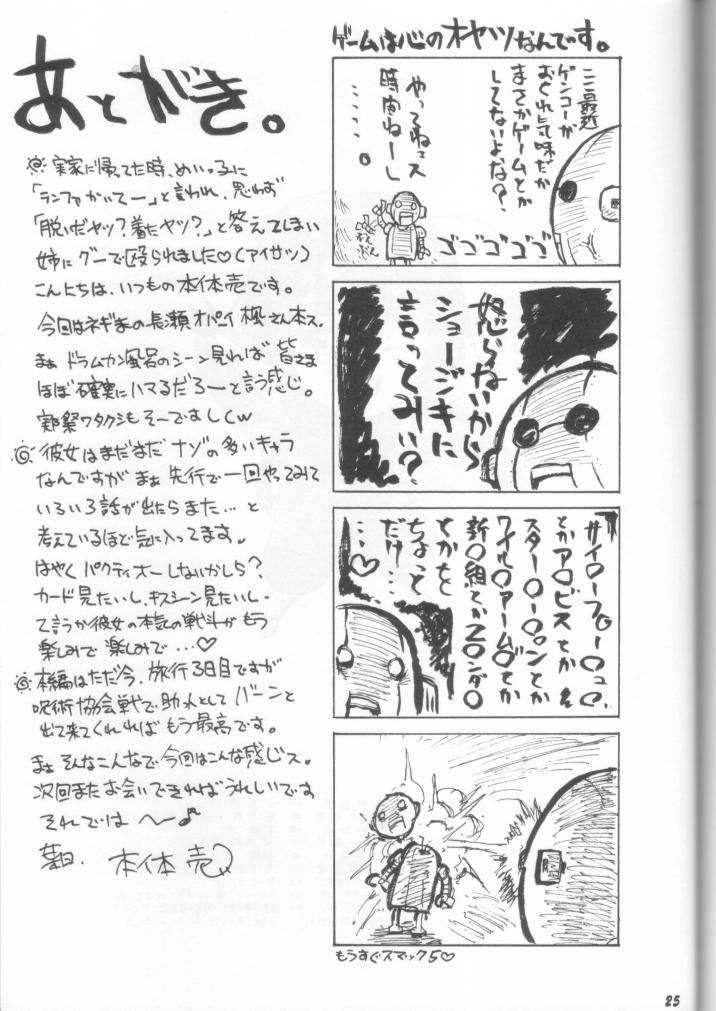 ゲームは心のオヤツなんです。
ここ最近
ゲンコーが
おくれ気味だが
まさかゲームとか
してないよな?
やってねェス
時間ねーし
……。
ゴゴゴゴゴ
怒らないから
ショージキに
言ってみい?
とかア〇ビスとか
スター〇ー〇ンとか
ワイル〇アームズとか
新〇組とかZ〇ンダ〇
とかをと
ちょっと
だけ…
…♡
もうすぐスマック5♡
あとがき。
実家に帰ってた時、めいっ子に
「ランファかいてー」と言われ、思わず
「脱いだヤツ?着たヤツ?」と答えてしまい
姉にグーで殴られました♡(アイサツ)
こんにちは、いつもの本体売です。
今回はネギまの長瀬オパイ楓さん本ス。
まぁドラムカン風呂のシーン見れば皆さま
ほぼ確実にハマるだろーと言う感じ。
実際ワタクシもそーですしくw
彼女はまだまだナゾの多いキャラ
なんですがまぁ先行で一回やってみて
いろいろ話が出たらまた…と
考えているほど気に入ってます。
はやくパクティオーしないかしら?
カード見たいし、キスシーン見たいし-
て言うか彼女の本気の戦斗がもう
楽しみで楽しみで…♡
本編はただ今、旅行3日目ですが
呪術協会戦で助っ人としてバーンと
出て来てくれればもう最高です。
まぁそんなこんなで今回はこんな感じス。
次回またお会いできればうれしいです
それでは へ〜♪
本体売
25